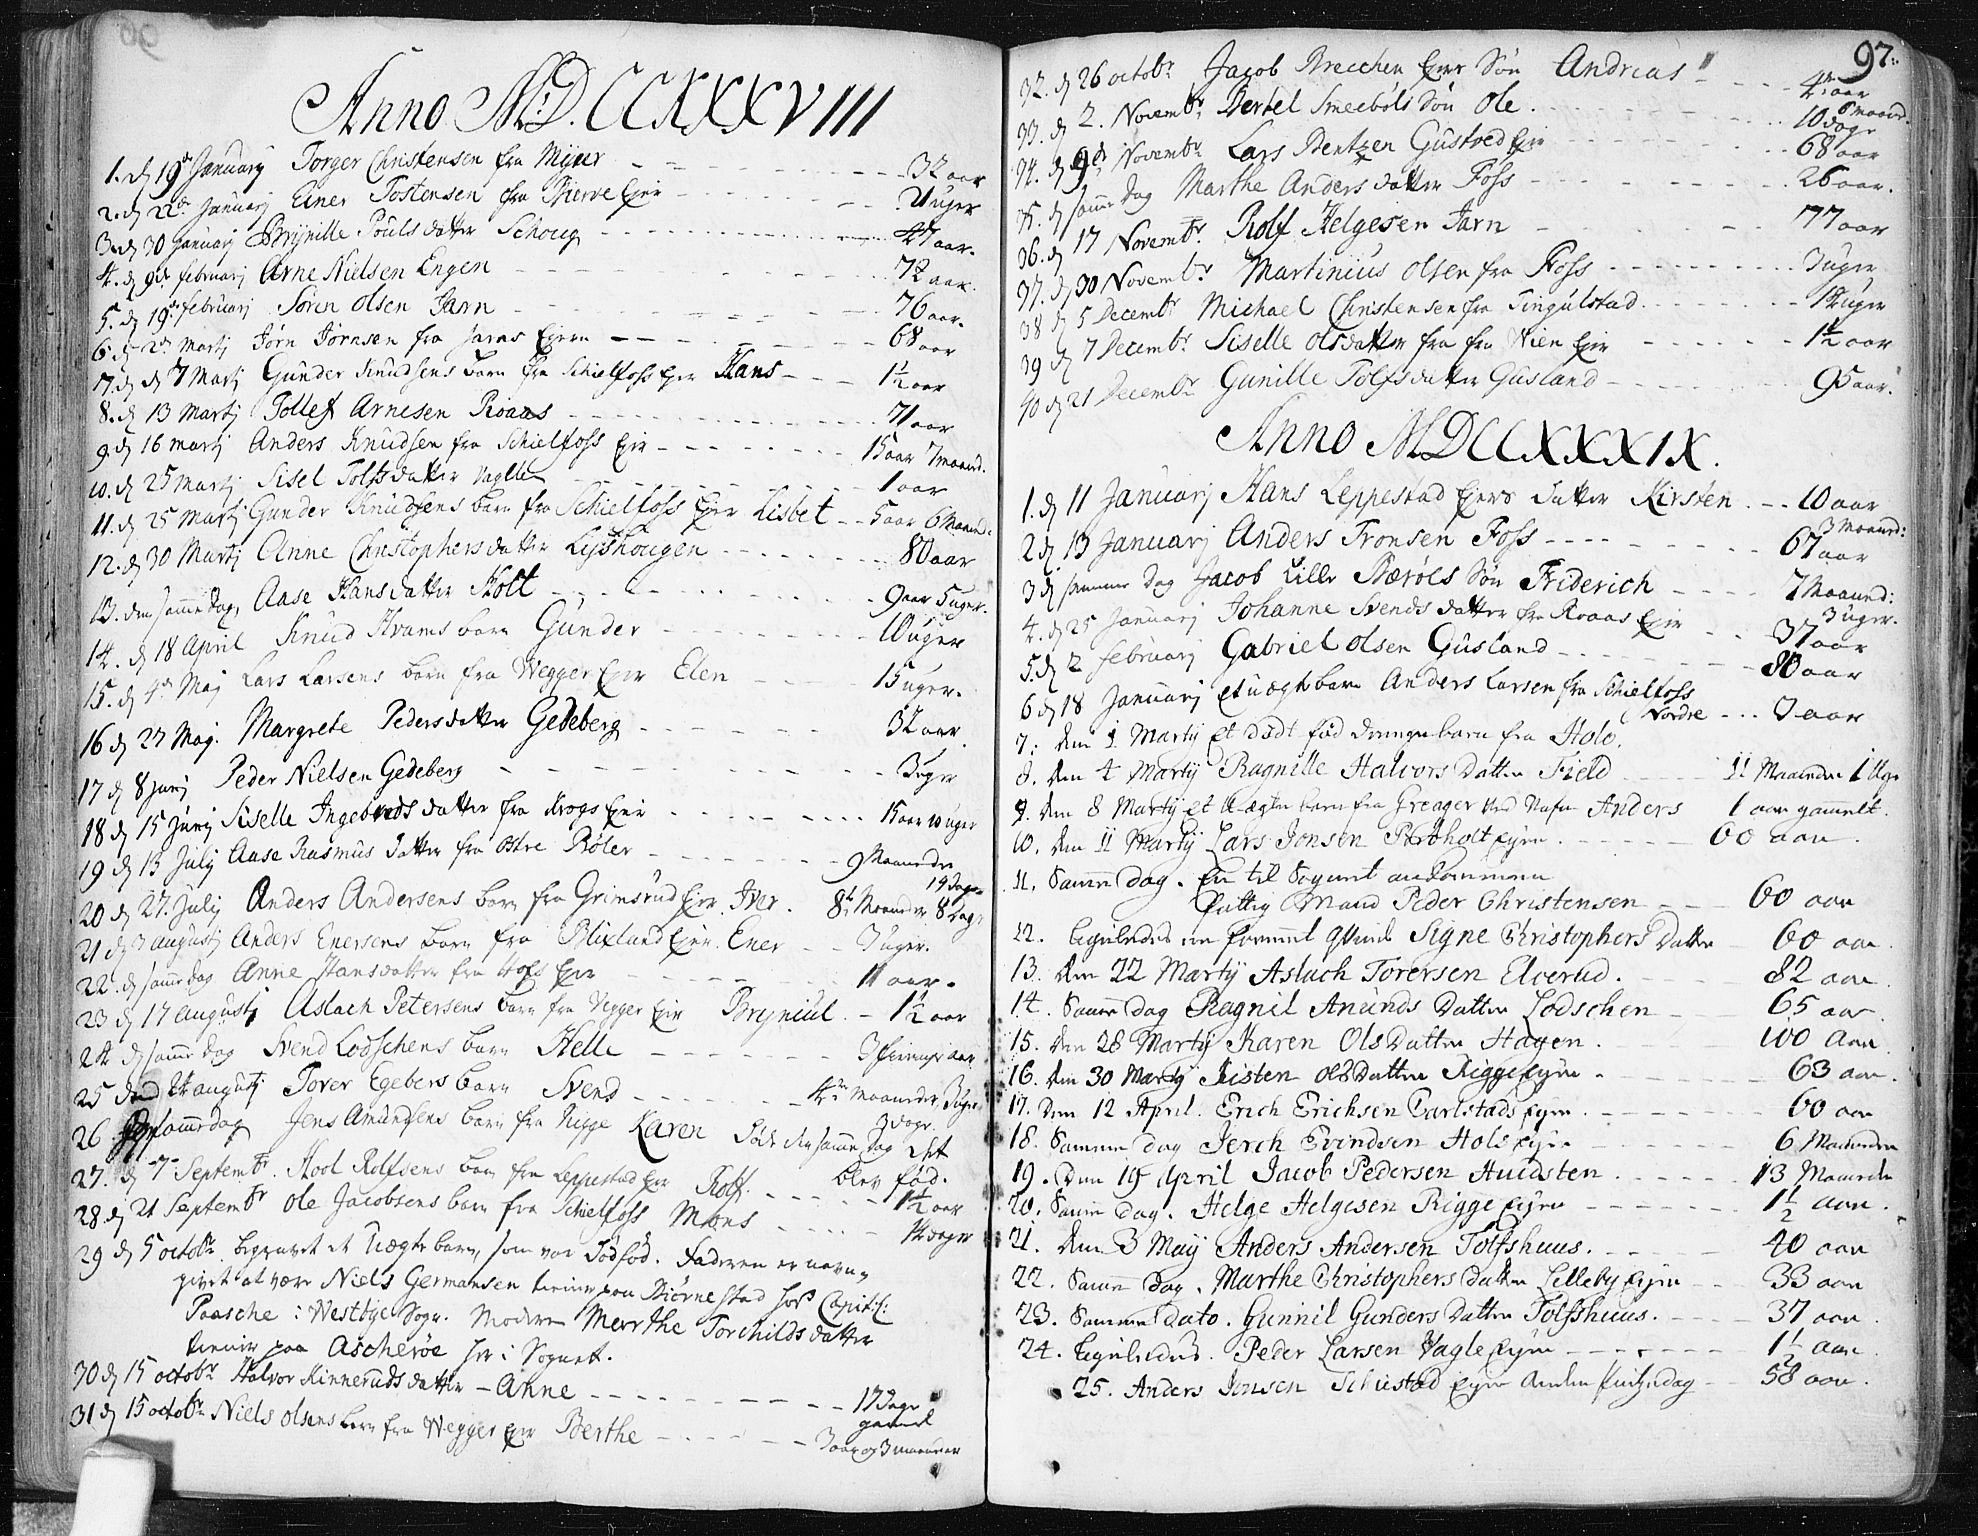 Anno MD.CCXXXVIII
1. d 19de January Torger Christensen fra Myrer - - - 32 aar
2. d 22de Januarj Einer Tostensen fra Bierve Eje - - - 2 uger
3. d 30 Januarj Brynille Pouls datter Schoug - - - 47 aar.
4. d 9de februarj Arne Nielsen Engen - - - 72 aar.
5. d 19de februarj Søren Olsen Jarn - - - 76 aar.
6. d 2de Martj Jørn Jørnsen fra Jarns Ejern - - - 68 aar
7. d 7 Martj Gunder Knudsens barn fra Schielfoss Eje Hans - - - 1½ aar
8. d 13 Martj Tollef Arnesen Roaas - - - 71 aar
9 d 16 martj Anders Knudsen fra Schielfoss Eje - - - 15 aar 7 maaned.
10. d 25 Martj Sisel Tolfsdatter Vaglle - - - 1 aar
11. d 25 Martj Gunder Knudsens barn fra Schielfoss Ejer Lisbet - - 5 aar 6 Maaned.
12. d 30 Martj Anne Christophers datter Lysshougen - - - 80 aar
13. den samme dag, Aase Hans datter Holt - - - 9 aar 5 uger.
14. d 18 April Knud Hvams barn Gunder - - - 10 uger
15. d 4de Maj Lars Larsens barn fra Vegger Eje Elen - - - 15 uger.
16 d 27 Maj. Margrete Peders datter Gedeberg - - - 32 aar
17 d 8 junj Peder Nielsen Gedeberg - - - 3 uger
18 d 15 Junj Siselle Ingebreds datter fra Krogs Eje - - - 15 aar 10 uger
19 d 13 July Aase Rasmus datter fra Østre Røler - - - 9 Maaneder
14 dage
20 d 27. July Anders Andersens barn fra Grimsrud Eje. Iver. 8te Maaneder 8 Dage
21 d 3 augustj Anders Enersens barn fra Blixlund Ejer. Ener - - 3 uger.
22. d samme dag Anne Hansdatter fra Hofs Eje - - - 11 aar.
23 d 17 augustj Aslach Petersens barn fra Vegger Eje Bryniul. - 1½ aar
24 d samme dag Svend Lodschens barn Helle - - - 3 aar
25 d 24 augustj Tover Egebers barn Svend - - - 4re Maaneder 3 uger
3 dage.
26 d samme dag Jens Amundsens barn fra Rigge Karen Døde den samme dag det
blev fød.
27. d 7 Septembr. Hoel Rolfsens barn fra Leppestad Eje Rolf. - - - 1½ aar
28 d 21 Septembr Ole Jacobsens barn fra Schielfoss Mons - - - 14 dage
29 d 5 octobr. begravet et Uægte barn, som var Dødfød. Faderen er navn-
givet at være Niels Germansen tiener paa Biørnestad hos Capit:
Paasche i Westbye Sogn. Moderen Merrthe Torchilds datter
tiener paa Ascherøe her i Sognet.
30 d 15 octobr Halvor Kinneruds datter - Anne - - - 17 dage
gamel
31 d 15 octobr Niels Olsens barn fra Vegger Eje Berthe - - - 3 aar og 3 maaneder
97.
32. d 26 octobr Jacob Brecchen Ejer Søn Andreas - - - 4 aar
6 maaned.
33. d 2. Novembr Bertel Smeebøls Søn Ole. - - - 10 dage
34. d 9de Novembr Lars Bentzen Gustved Eje - - - 68 aar
35. d samme dag Marthe Anders datter Foss - - - 26 aar.
36. d 17 Novembr. Rolf Helgesen Jarn - - - 77 aar
37. d 30 Novembr Martinius Olsen fra Foss - - - 3 uger
38 d 5 Decembr Michael Christensen fra Tingulstad - - - 12 uger
39 d 7 Decembr. Siselle Olsdatter fra fra Nien Eje - - - 1½ aar
40 d 21 Decembr Gunille Tolfsdatter Gusland - - - 95 aar.
Anno MDCCXXXIX.
1. d 11 Januarj Hans Leppestad Ejers datter Kirsten. - - 10 aar
3 Maaned:
2 d 13 Januarj Anders Tronsen Foss - - - 67 aar
3 d samme dag Jacob Lille Bærøls Søn Friderich - - - 7 Maaned:
3 uger.
4. d 25 Januarj Johanne Svends datter fra Roaas Eje - - 37 aar
5. d 2 februarj Gabriel Olsen Gusland - - - 80 aar
6 d 18 Januarj et uægte barn Anders Larsen fra Schielfoss
Nordre - - - 3 aar
7. Den 1 Martij et dødt fød drengebarn fra Holo.
8. Den 4 Martij Ragnille Halvors Datter Field - - - 11 Maaneder 1 Uge
9. Den 8 Martij et Uægte barn fra Greager ved Nafn Anders 1 aar gammelt.
10. Den 11 Martij Lars Jonsen Pærholt Ejen. - - - 60 aar.
11. Samme dag. En til Sognet ankommen
Fattig Mand Peder Christensen - - - 60 aar
12. Ligeledes en fremmet qvinde Signe Christophers Datter - 60 aar.
13. Den 22 Martij Aslach Torersen Elverud. - - - 82 aar.
14. Samme dag Ragnil Anunds Datter Lodschen - - - 65 aar.
15. Den 28 Martij Karen Ols Datter Hagen. - - - 100 Aar.
16. Den 30 Martij Kisten Ols Datter Rigge Ejen. - - - 63 aar.
17. Den 12 April. Erich Erichsen Carlstads Ejen. - - - 60 aar
18. Samme dag Jerch Evindsen Hols Ejen - - - 6 Maaneder
19. Den 19 April Jacob Pedersen Huidsten. - - - 13 Maaneder
20. Samme Dag. Helge Helgesen Rigge Ejen - - - 1½ aar.
21. Den 3 Maij Anders Andersen Tolfshuus. - - - 40 aar
22. Samme Dag. Marthe Christophers Datter Lilleby Ejen - - 33 aar
23. Samme Dato. Gunnil Gunders Datter Tolfshuus. - - - 37 aar.
24. Ligeledes. Peder Larsen Vagle Ejen - - - 1½ aar.
25. Anders Jonsen Schiestad Ejen Anden Pintzedag - - 58 aar.